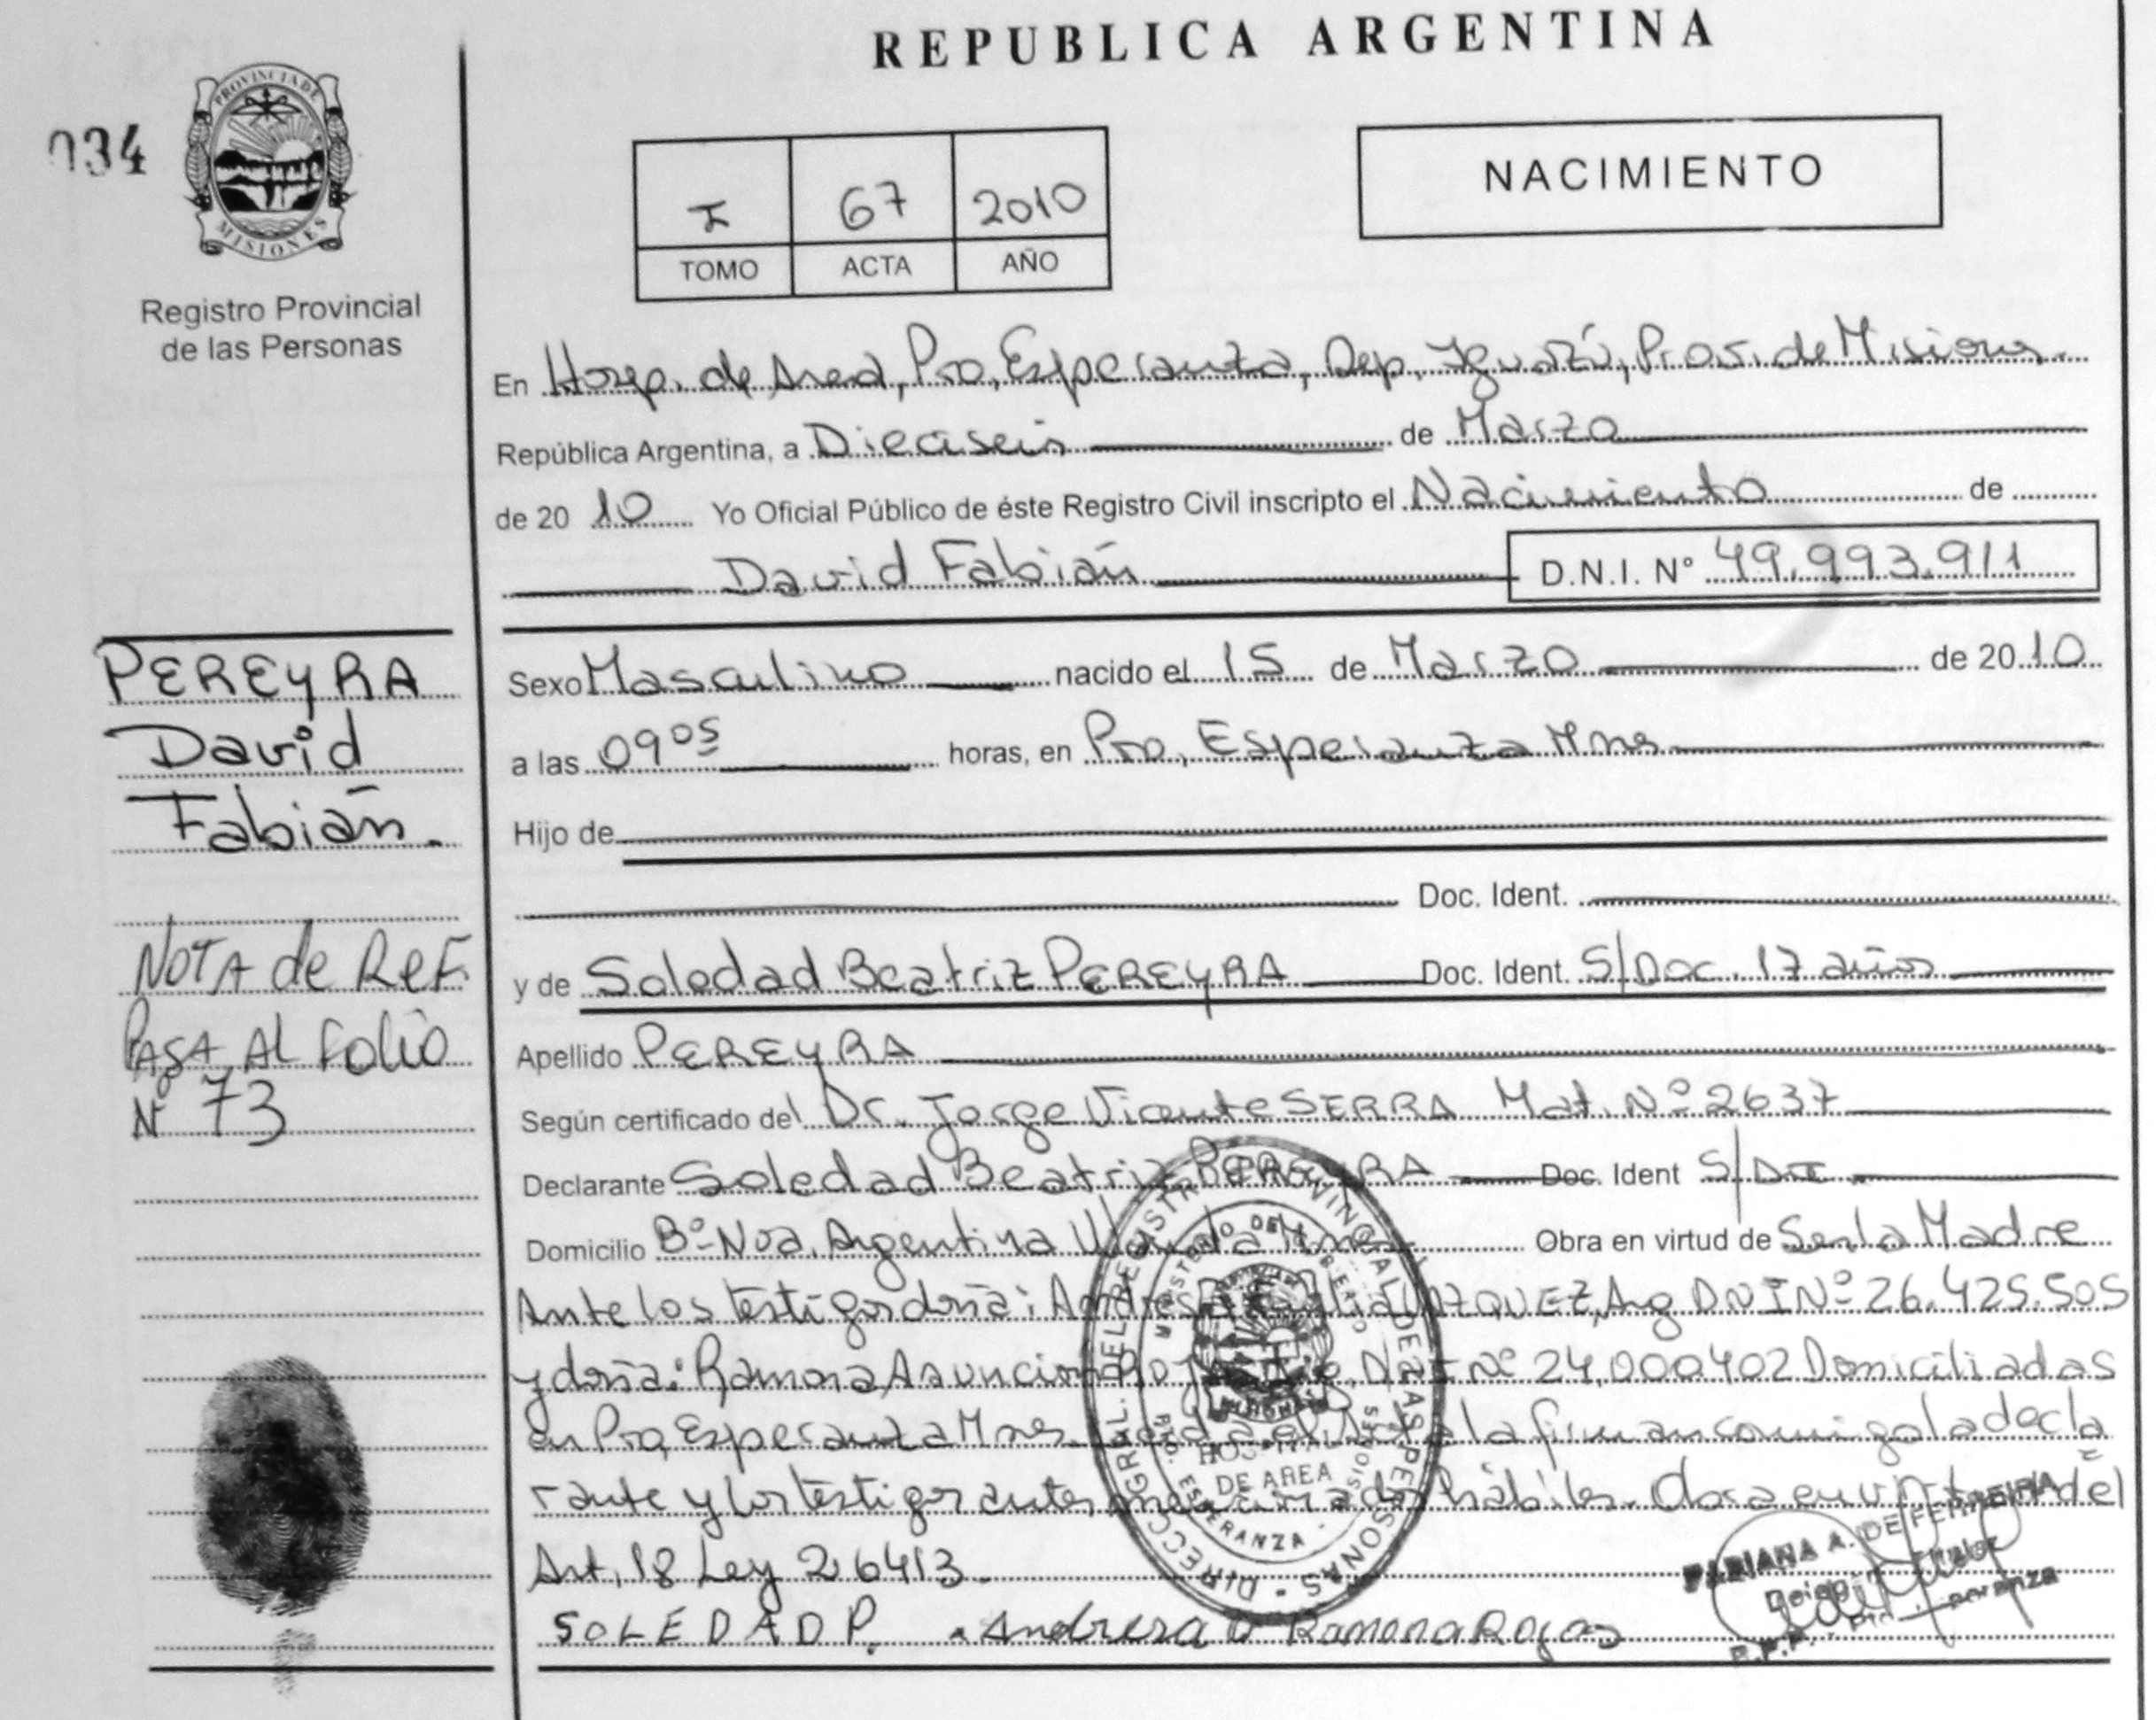 REPUBLICA ARGENTINA
034
PROVINCIA DE
MISIONES
Registro Provincial
de las Personas
I 67 2010
TOMO ACTA AÑO
NACIMIENTO
En Hosp. de Area, Pto, Esperanza, Dep. Iguazú, Prov. de Misiones.
República Argentina, a Dieciseis de Marzo
de 20 10 Yo Oficial Público de éste Registro Civil inscripto el Nacimiento de
David Fabián D.N.I. Nº 49.993.911
PEREYRA
David
Fabián.
NOTA de REF.
PASA AL folio
Nº 73
Sexo Masculino nacido el 15 de Marzo de 20 10
a las 09 05 horas, en Pto, Esperanza Mnes
Hijo de
Doc. Ident.
y de Soledad Beatriz PEREYRA Doc. Ident. S/Doc. 17 años
Apellido PEREYRA
Según certificado del Dr. Jorge Vicente SERRA Mat. Nº 2637
Declarante Soledad Beatriz PEREYRA Doc. Ident S/D
Domicilio Bº Nva. Argentina Obra en virtud de Ser la Madre
Ante los testigos doña: VAZQUEZ, Arg DNI Nº 26.425.505
y doña: Ramona Asuncion DNI Nº 24,000402 Domiciliadas
en Pto, Esperanza Mnes. la firman conmigo la decla
rante y los testigos antes hábiles. Obra en del
Art. 18 Ley 26413.
SOLEDAD P. Ramona Rojas
DIRECC. GRAL. DEL REGISTRO PROVINCIAL DE LAS PERSONAS
MINISTERIO DE GOBIERNO
HOSPITAL
DE AREA
PTO. ESPERANZA - MISIONES
FABIANA A. DE FERREIRA
Titular